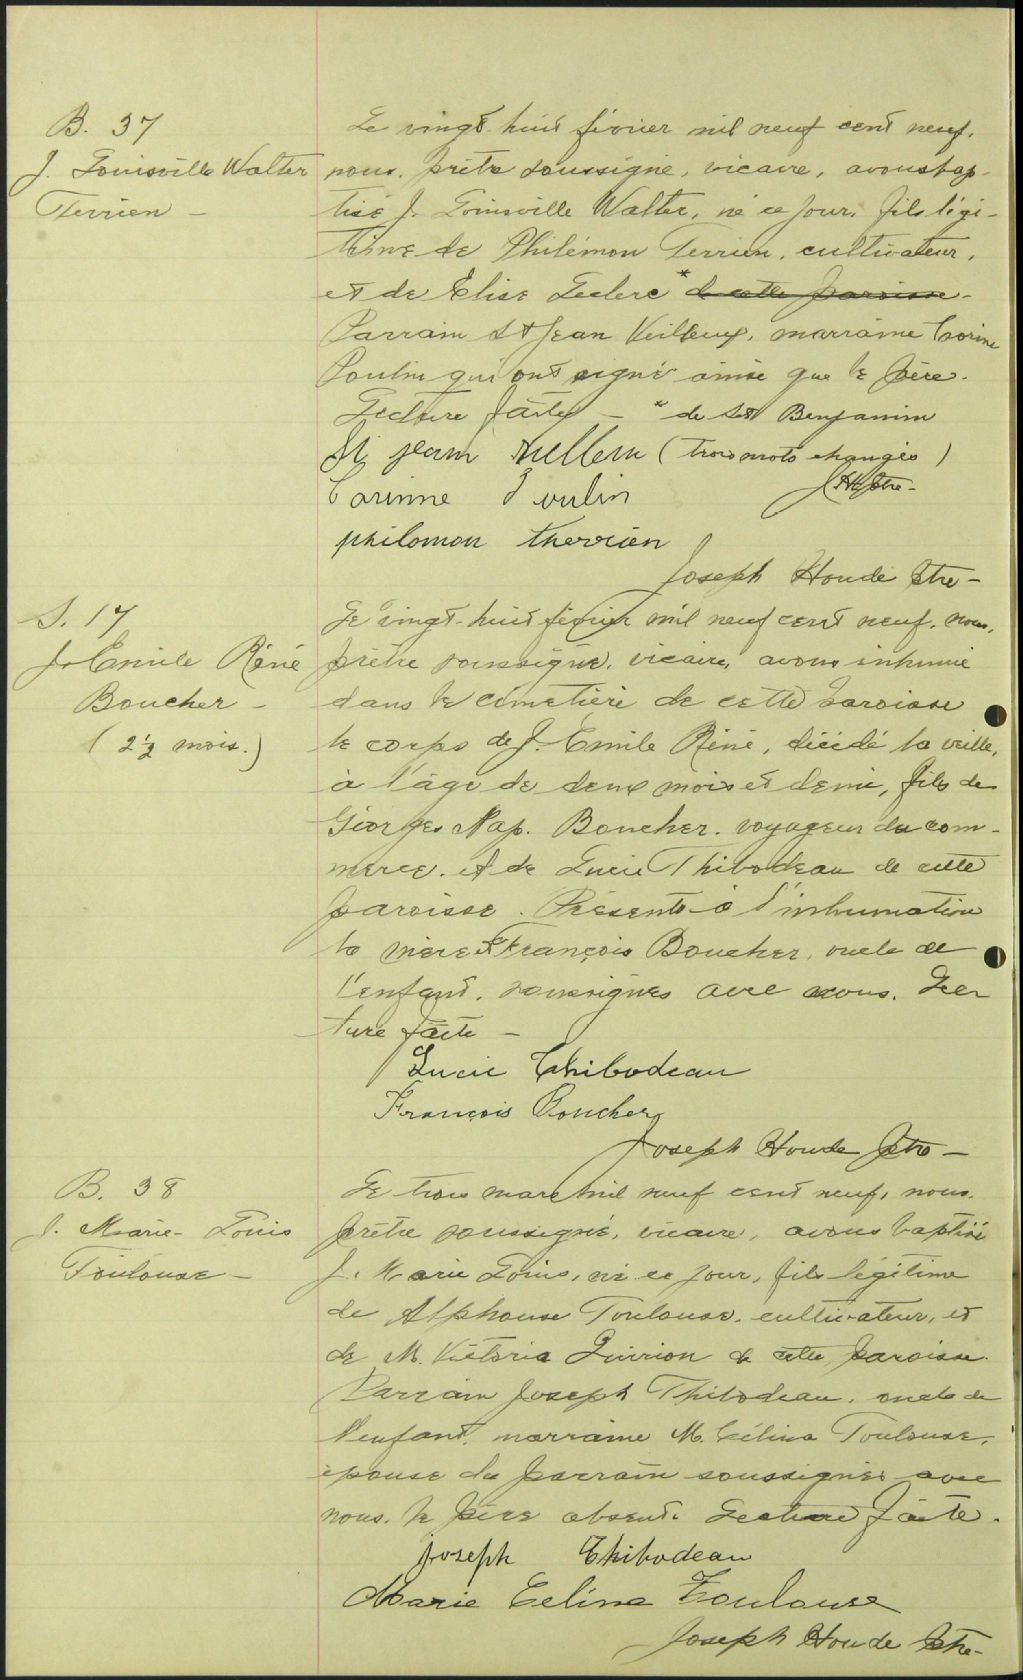 B. 37
J. Louisville Walter
Terrien -
Le vingt-huit février mil neuf cent neuf,
nous, prêtre soussigné, vicaire, avons bap-
tisé J. Louisville Walter, né ce jour, fils légi-
time de Philémon Terrien, cultivateur,
et de Elise Leclerc * de cette paroisse -
Parrain St Jean Veilleux, marraine Corine
Poulin qui ont signé ainsi que le père.
Lecture faite - * de St Benjamin
St jean (trois mots changés)
Corinne Poulin JH Ptre -
philomon therrien
Joseph Houde Ptre -
S. 17
J. Emile Réné
Boucher -
(2½ mois.)
Le vingt-huit février mil neuf cent neuf, nous,
prêtre soussigné, vicaire, avons inhumé
dans le cimetière de cette paroisse
le corps de J. Emile Réné, décédé la veille,
à l'âge de deux mois et demi, fils de
Georges Nap. Boucher, voyageur du com-
merce, et de Lucie Thibodeau de cette
paroisse. Présents à l'inhumation
la mère et François Boucher, oncle de
l'enfant, soussignés avec nous. Lec
ture faite -
Lucie Thibodeau
François Boucher
Joseph Houde Ptre -
B. 38
J. Marie-Louis
Toulouse -
Le trois mars mil neuf cent neuf, nous,
prêtre soussigné, vicaire, avons baptisé
J. Marie Louis, né ce jour, fils légitime
de Alphonse Toulouse, cultivateur, et
de M. Victoria Quirion de cette paroisse.
Parrain Joseph Thibodeau, oncle de
l'enfant, marraine M. Célina Toulouse,
épouse du parrain soussignés avec
nous. le père absent. Lecture faite.
Joseph Thibodeau
Marie Celina Toulouse
Joseph Houde Ptre -